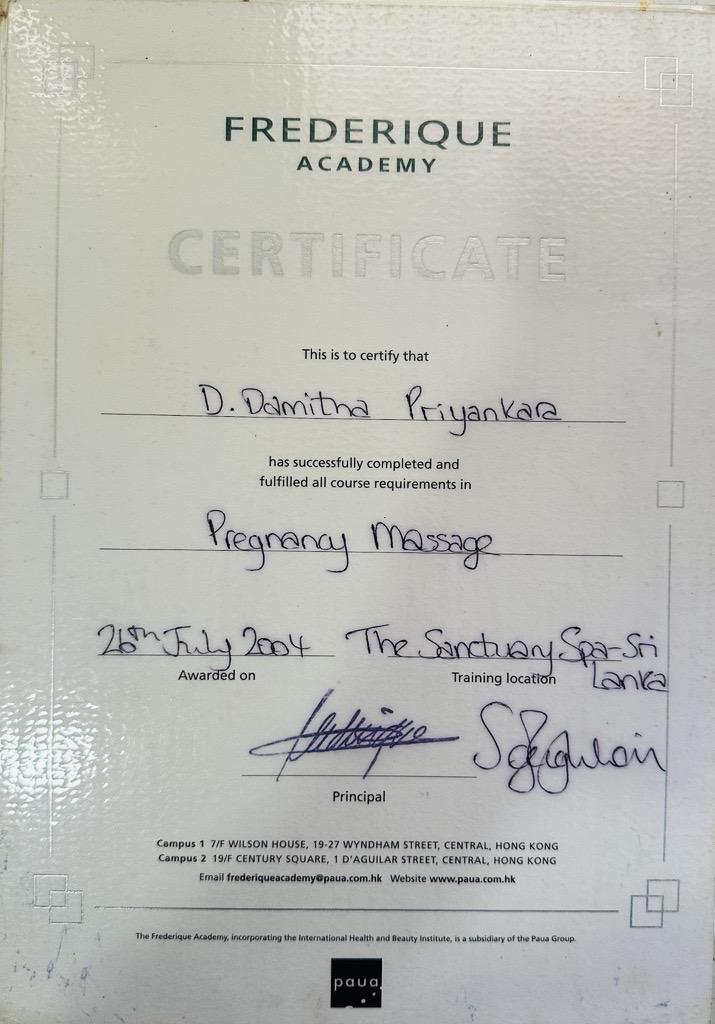 FREDERIQUE
ACADEMY
CERTIFICATE
This is to certify that
D. Damitha Priyankara
has successfully completed and
fulfilled all course requirements in
Pregnancy Massage
26th July 2004 The Sanctuary Spa-Sri
Lanka
Awarded on Training location
Principal
Campus 1 7/F WILSON HOUSE, 19-27 WYNDHAM STREET, CENTRAL, HONG KONG
Campus 2 19/F CENTURY SQUARE, 1 D'AGUILAR STREET, CENTRAL, HONG KONG
Email frederiqueacademy@paua.com.hk Website www.paua.com.hk
The Frederique Academy, incorporating the International Health and Beauty Institute, is a subsidiary of the Paua Group.
paua